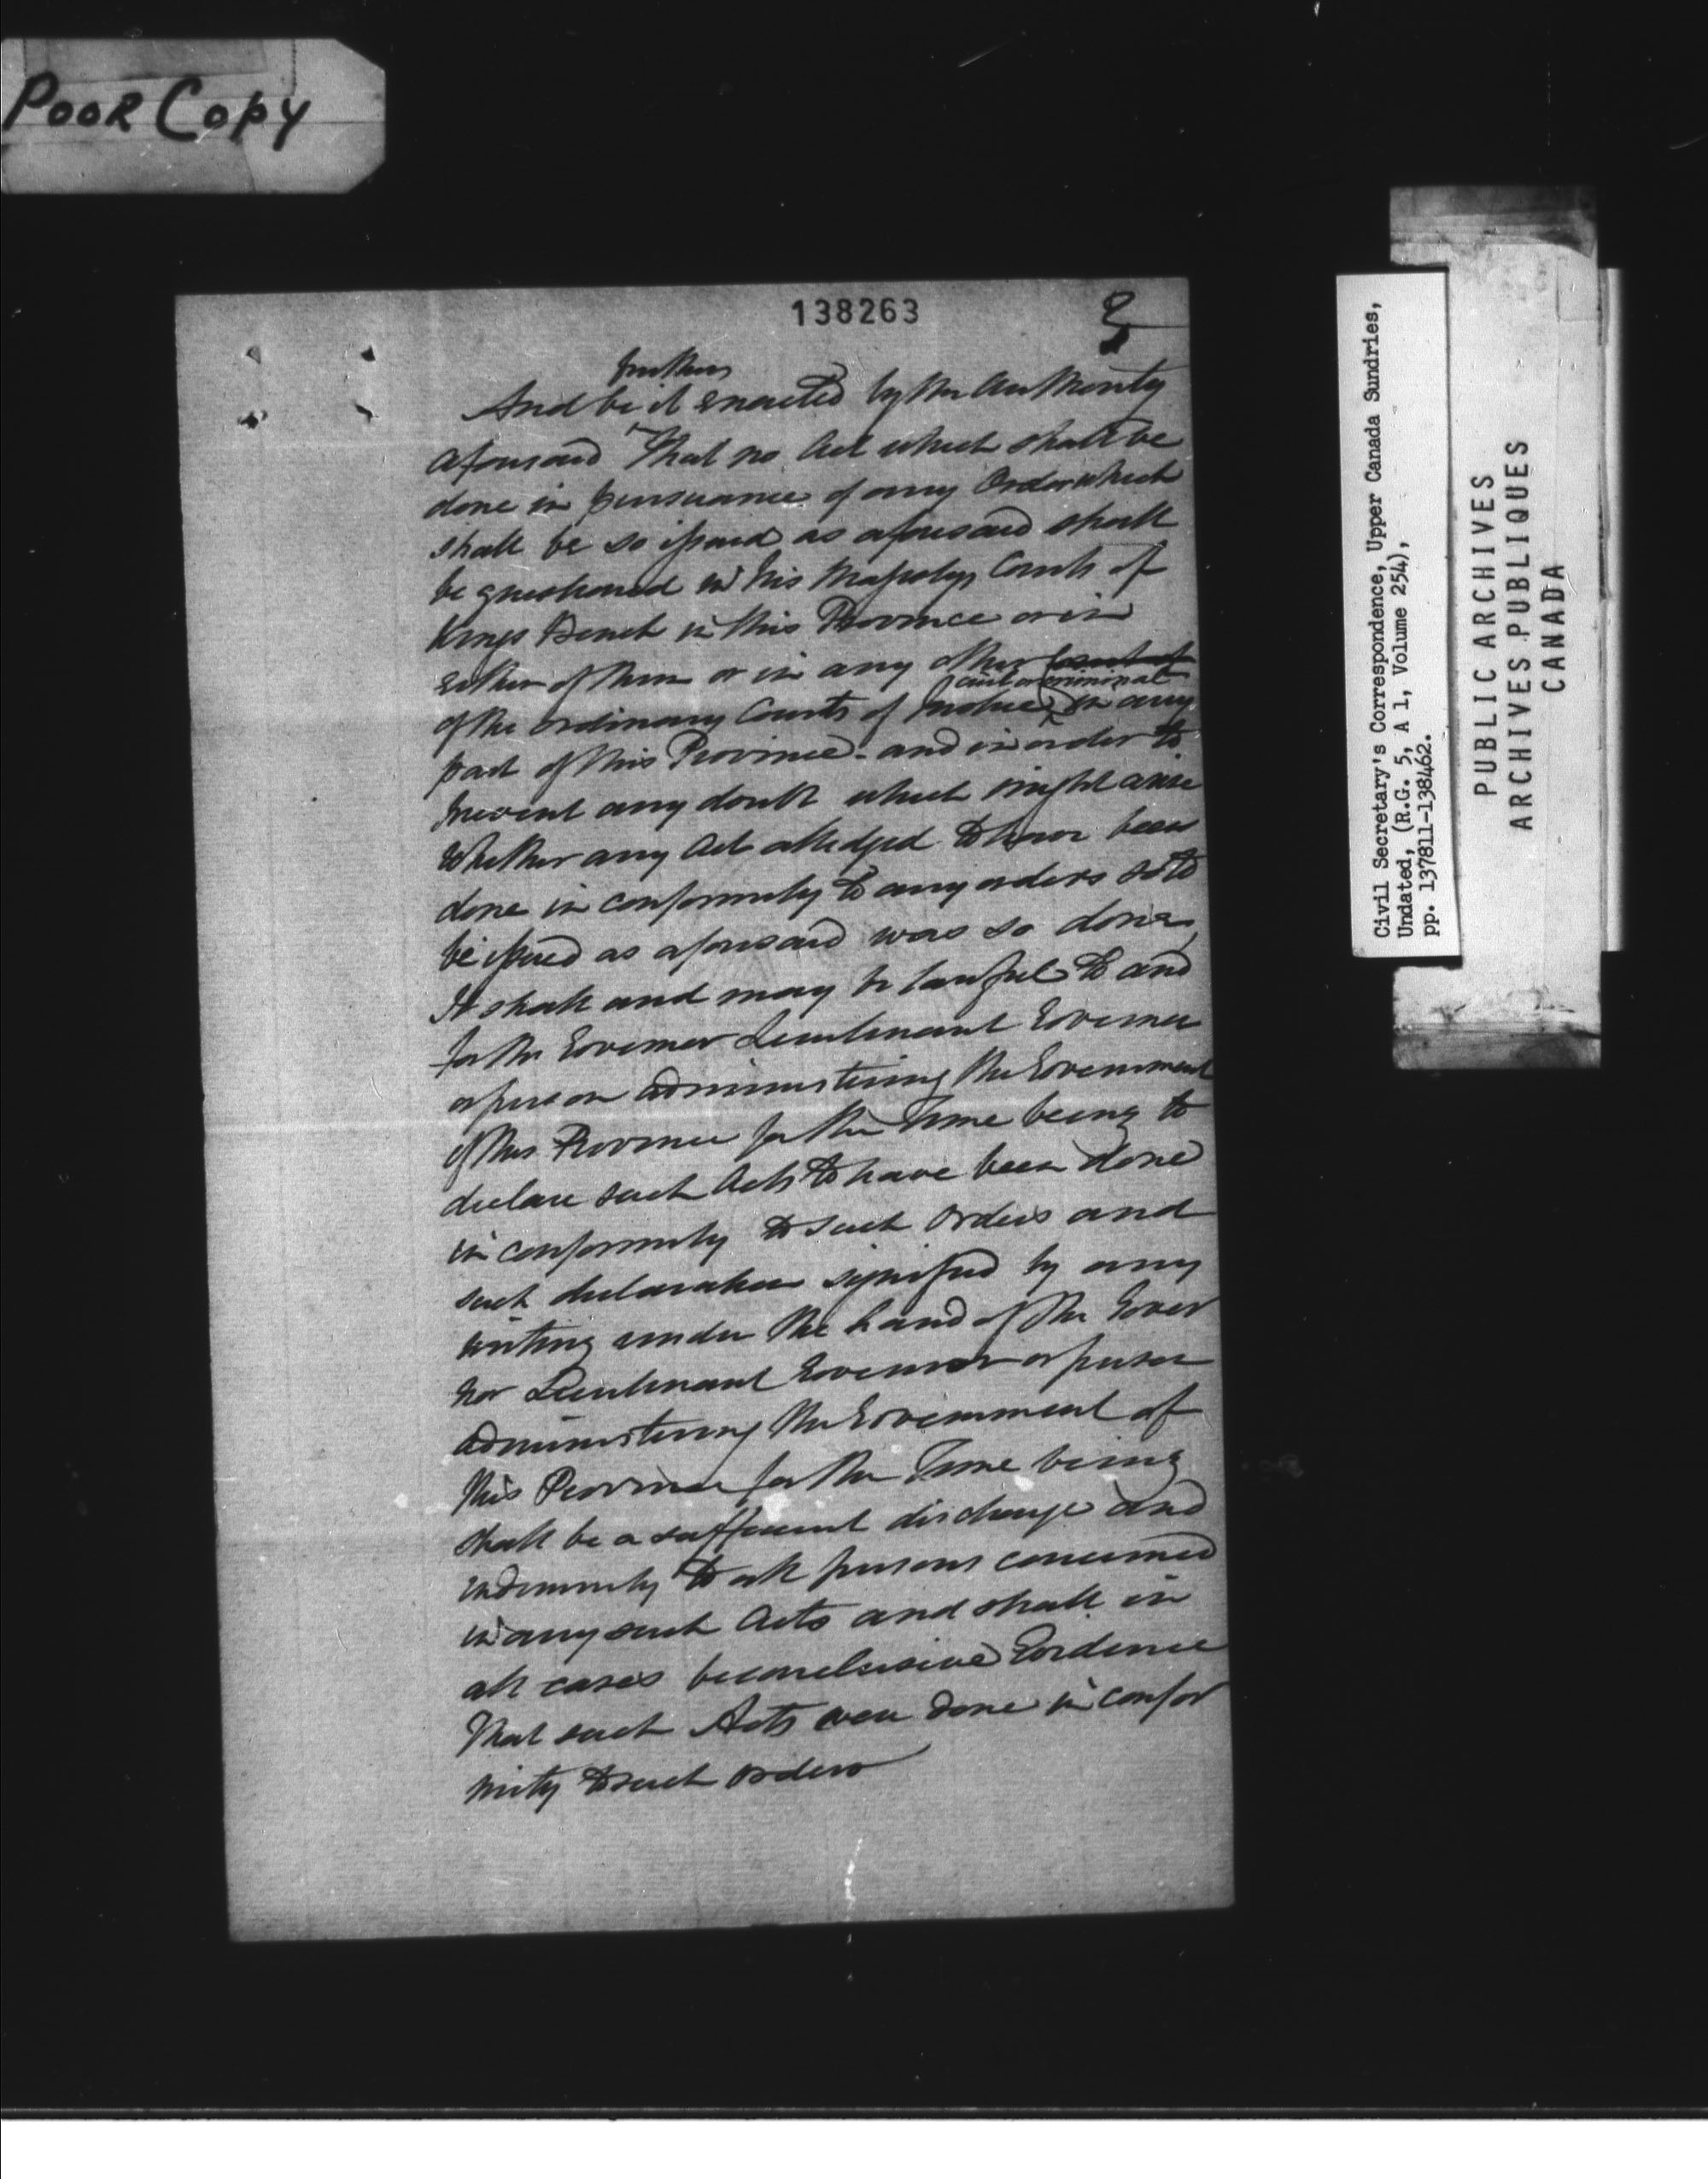 Poor Copy
138263
3
further
And be it enacted by the Authority
aforesaid That no Act which shall be
done in pursuance of any Order which
shall be so issued as aforesaid shall
be questioned in his Majestys Courts of
Kings Bench in this Province or in
either of them or in any other Court of
civil or criminal
of the ordinary Courts of Justice in any
part of this Province - and in order to
prevent any doubt which might arise
whether any Act alledged to have been
done in conformity to any orders so to
be issued as aforesaid was so done,
It shall and may be lawful to and
for the Governor Lieutenant Governor
or person administering the Government
of this Province for the Time being to
declare such Acts to have been done
in conformity to such orders and
such declaration signified by any
writing under the hand of the Gover
nor Lieutenant Governor or person
administering the Government of
this Province for the Time being
shall be a sufficient discharge and
indemnity to all persons concerned
in any such Acts and shall in
all cases be conclusive Evidence
That such Acts were done in confor
mity to such orders
Civil Secretary's Correspondence, Upper Canada Sundries,
Undated, (R.G. 5, A 1, Volume 254),
pp. 137811-138462.
PUBLIC ARCHIVES
ARCHIVES PUBLIQUES
CANADA